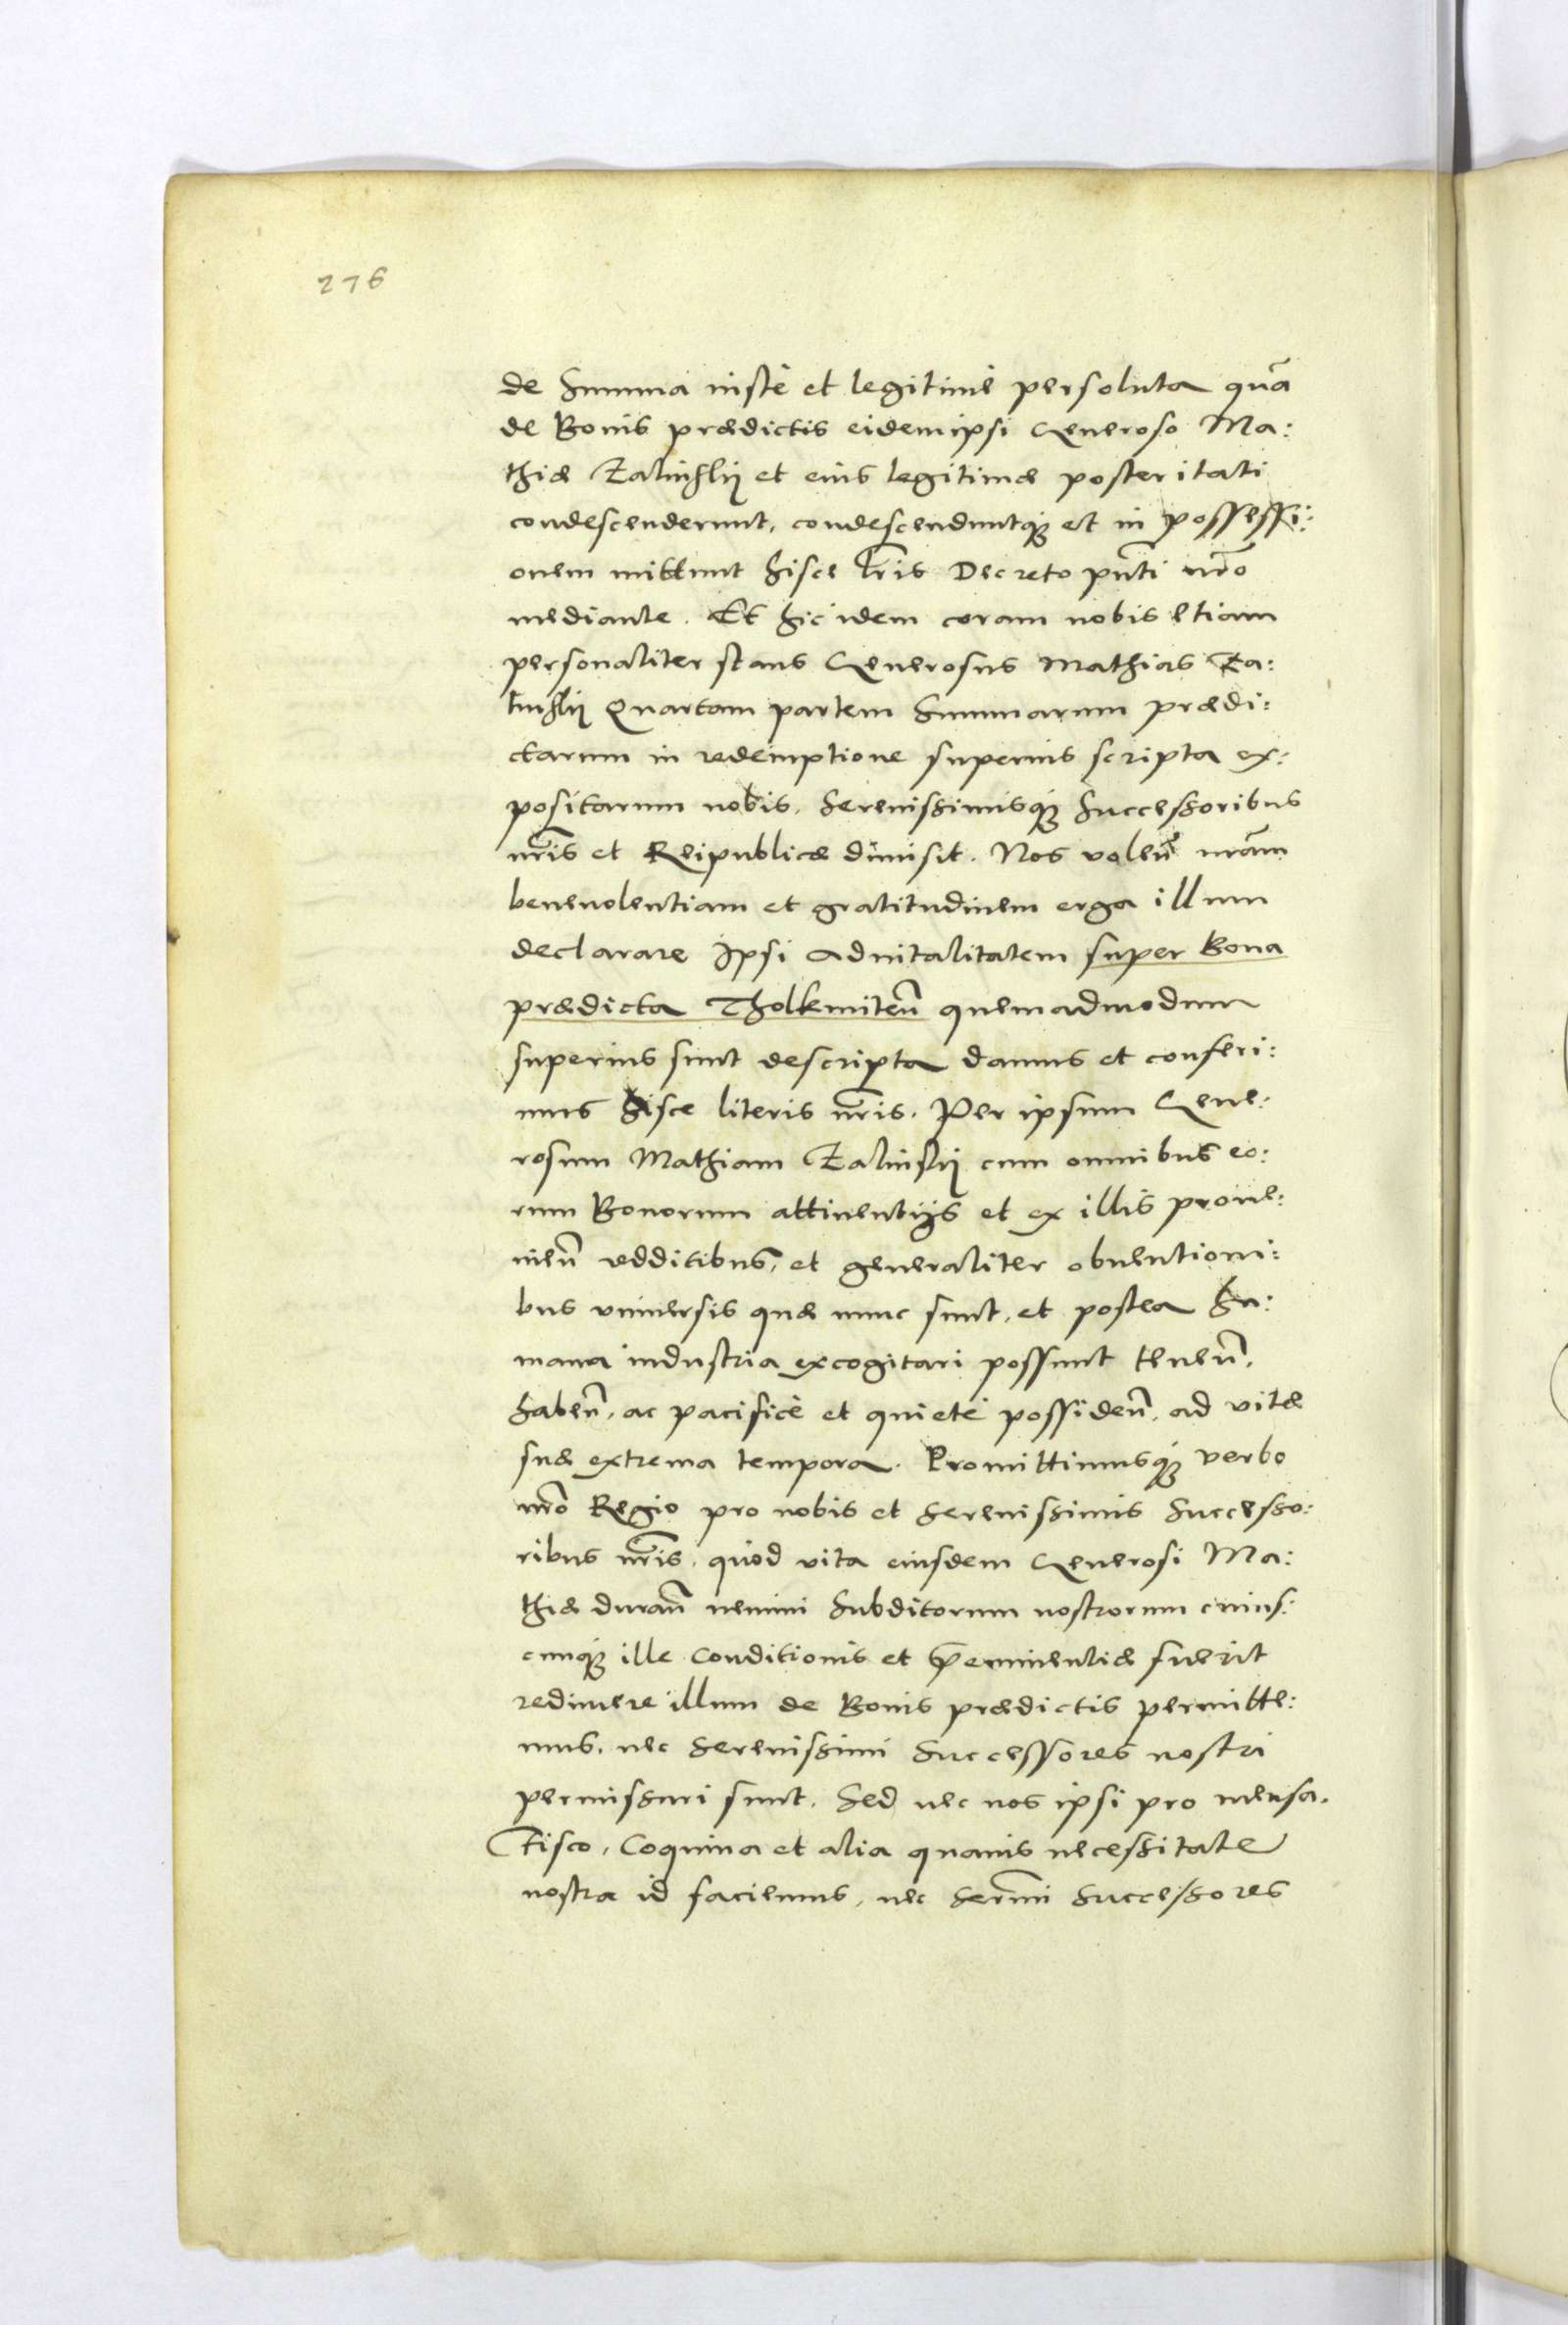 276
de Summa iustè et legitimè persoluta quā
de Bonis prædictis eidem ipsi Generoso Ma:
thiæ Zalinskij et eius legitimæ posteritati
condescenderunt, condescenduntq́ue et in possessi:
onem mittunt hisce l̃ris Decreto pñti nr̃o
mediante. Et hic idem coram nobis etiam
personaliter stans Generosus Mathias Za:
linskij Quartam partem Summarum prædi:
ctarum in redemptione superius scripta ex:
positarum nobis, Serenissimisq́ue Successoribus
nr̃is et Reipublicæ dimisit. Nos volen̄ nr̃am
beneuolentiam et gratitudinem erga illum
declarare Ipsi aduitalitatem super Bona
prædicta Tholkmiten̄ quemadmodum
superius sunt descripta damus et conferi:
mus hisce literis nr̃is. Per ipsum Gene:
rosum Mathiam Zalinskij cum omnibus eo:
rum Bonorum attinentijs et ex illis proue:
nien̄ redditibus, et generaliter obuentioni:
bus vniuersis quæ nunc sunt, et postea hu:
mana industria excogitari possunt tenen̄,
haben̄, ac pacificè et quietè possiden̄, ad vitæ
suæ extrema tempora. Promittimusq́ue verbo
nr̃o Regio pro nobis et Serenissimis Successo:
ribus nr̃is, quòd vita eiusdem Generosi Ma:
thiæ duran̄ nemini Subditorum nostrorum cuius:
cunq́ue ille Conditionis et p̄eminentiæ fuerit
redimere illum de Bonis prædictis permitte:
mus, nec Serenissimi Successores nostri
permissuri sunt. Sed nec nos ipsi pro mensa,
Fisco, Coquina et alia quauis necessitate
nostra id faciemus, nec Ser̃mi Successores